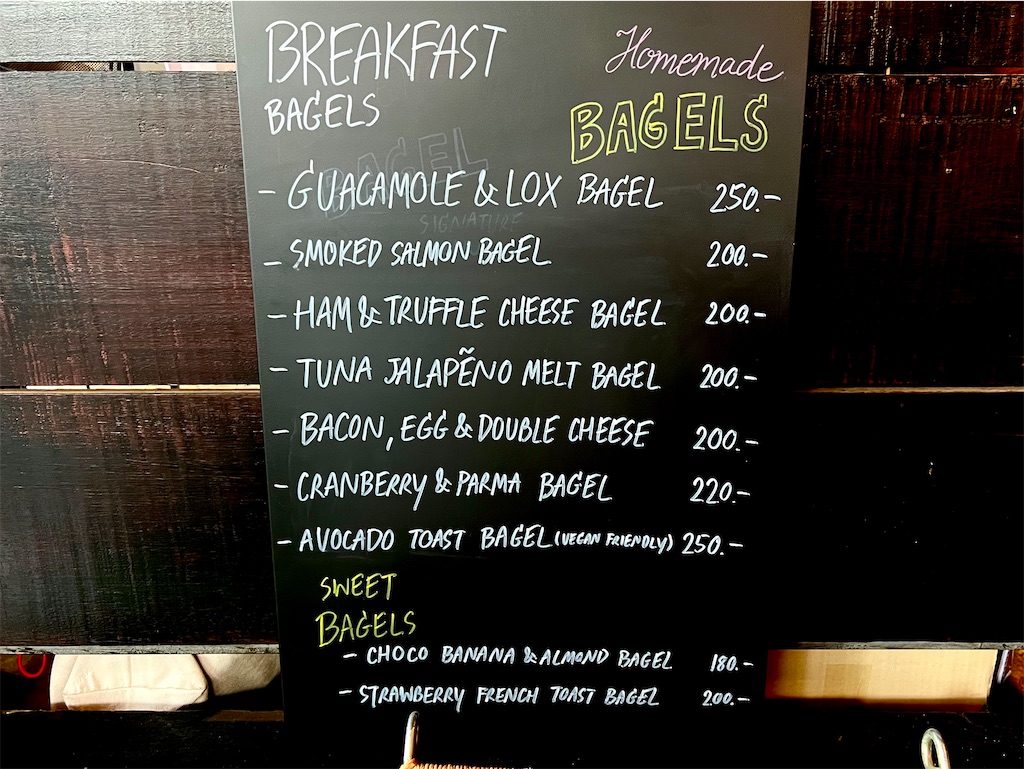 BREAKFAST
BAGELS
Homemade
BAGELS
BAGEL
SIGNATURE
- GUACAMOLE & LOX BAGEL 250.-
- SMOKED SALMON BAGEL 200.-
- HAM & TRUFFLE CHEESE BAGEL 200.-
- TUNA JALAPẼNO MELT BAGEL 200.-
- BACON, EGG & DOUBLE CHEESE 200.-
- CRANBERRY & PARMA BAGEL 220.-
- AVOCADO TOAST BAGEL (VEGAN FRIENDLY) 250.-
SWEET
BAGELS
- CHOCO BANANA & ALMOND BAGEL 180.-
- STRAWBERRY FRENCH TOAST BAGEL 200.-